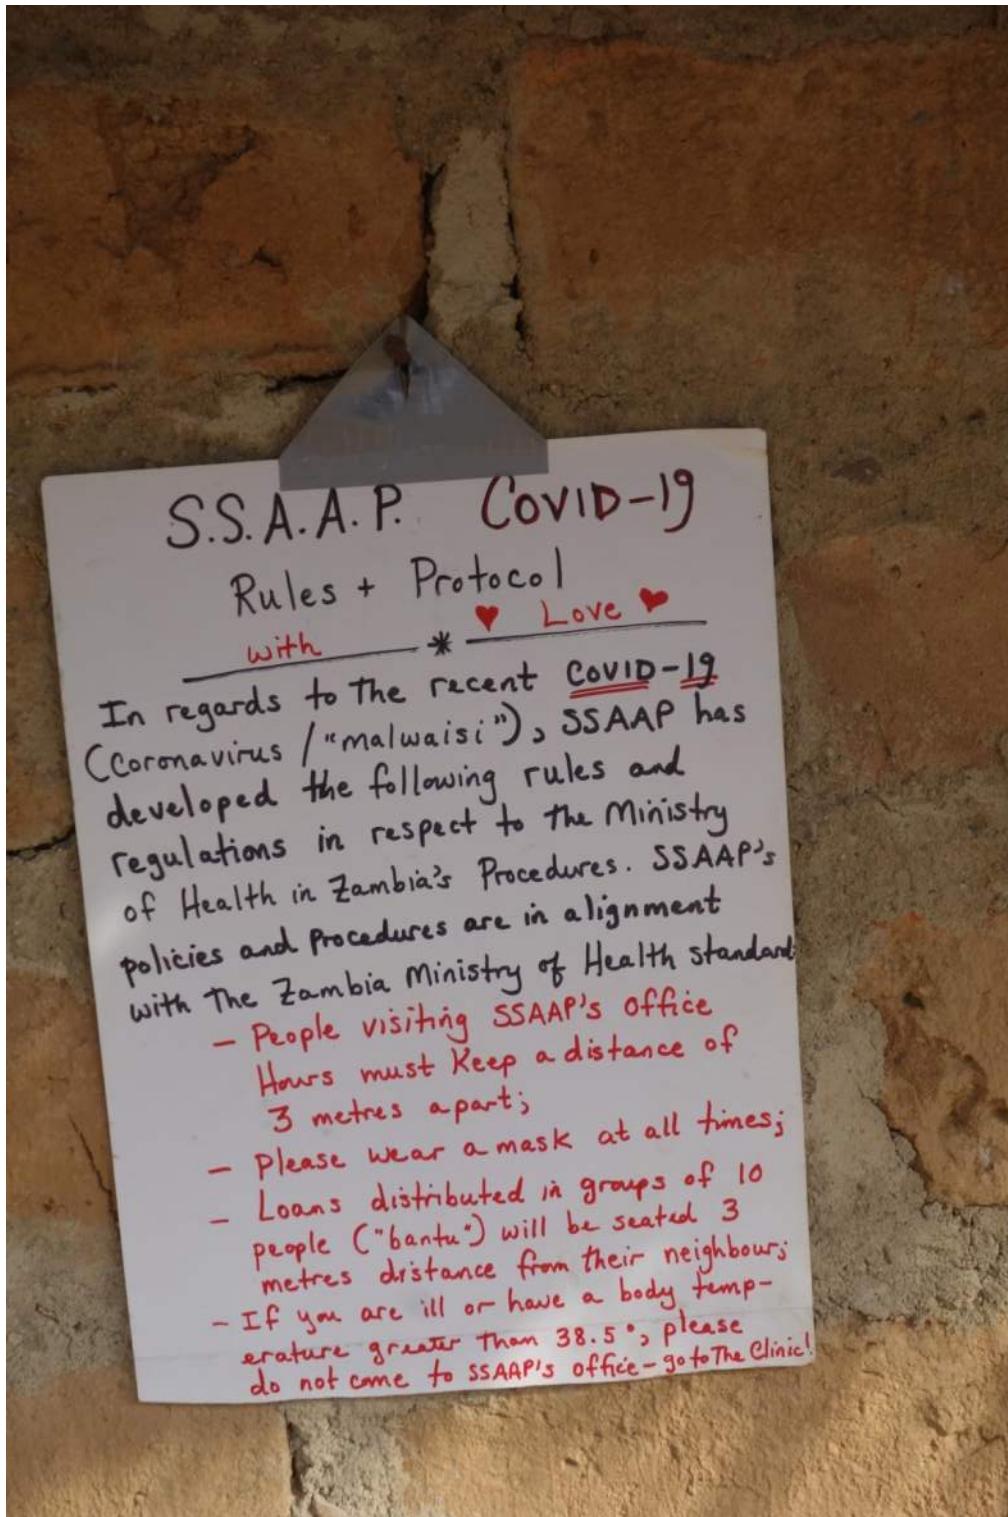 S.S.A.A.P. COVID-19
Rules + Protocol
with * ♥ Love ♥
In regards to the recent COVID-19
(Coronavirus / "malwaisi"), SSAAP has
developed the following rules and
regulations in respect to the Ministry
of Health in Zambia's Procedures. SSAAP's
policies and procedures are in alignment
with The Zambia Ministry of Health standard
- People visiting SSAAP's office
Hours must Keep a distance of
3 metres apart;
- Please wear a mask at all times;
- Loans distributed in groups of 10
people ("bantu") will be seated 3
metres distance from their neighbour;
- If you are ill or have a body temp-
erature greater than 38.5°, please
do not come to SSAAP's office - go to The Clinic!